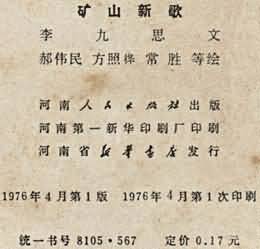 矿山新歌
李九思文
郝伟民 方照烨 常胜 等绘
河南人民出版社出版
河南第一新华印刷厂印刷
河南省新华书店发行
1976年4月第1版 1976年4月第1次印刷
统一书号 8105·567 定价 0.17元